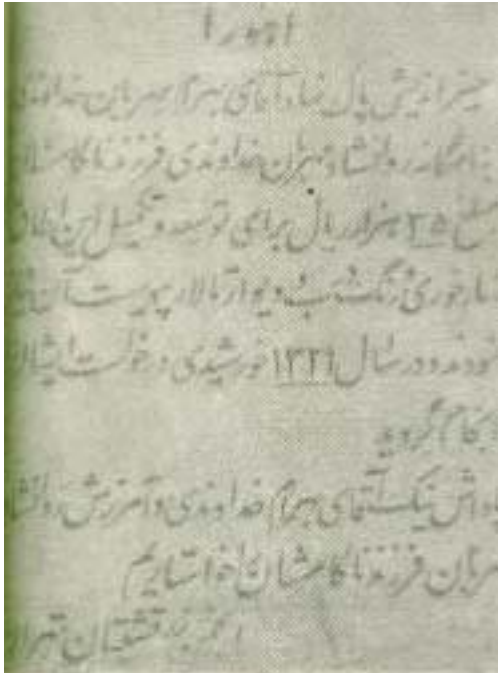 اهورا
خیراندیش پاک نهاد آقای بهرام مهربان خداوندی
روانشاد مهربان خداوندی فرزند ناکامشان
مبلغ ۳۵ هزار ریال برای توسعه و تکمیل این
و دیوار تالار پیوست آن
نمودند و در سال ۱۳۲۱ خورشیدی درخواست ایشان
انجام گردید
پاداش نیک آقای بهرام خداوندی و آمرزش روانشاد
مهربان فرزند ناکامشان را خواستاریم
انجمن زرتشتیان تهران